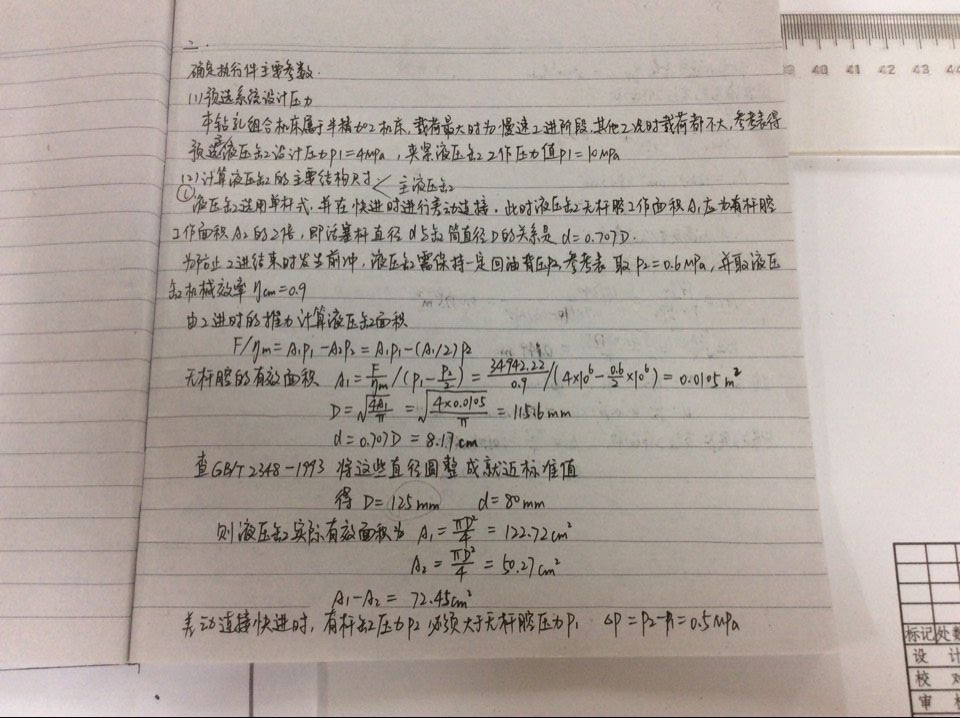 二.
确定执行件主要参数.
(1)预选系统设计压力
本钻孔组合机床属于半精加工机床,载荷最大时为慢速工进阶段,其他工况时载荷都不大,参考表得
预选液压缸设计压力p1=4MPa,夹紧液压缸工作压力值p1=10MPa
(2)计算液压缸的主要结构尺寸. < 主液压缸
① 液压缸选用单杆式,并在快进时进行差动连接,此时液压缸无杆腔工作面积A₁应为有杆腔
工作面积A₂的2倍,即活塞杆直径d与缸筒直径D的关系是d=0.707D.
为防止工进结束时发生前冲,液压缸需保持一定回油背压p₂,参考表 取P₂=0.6MPa,并取液压
缸机械效率ηcm=0.9
由工进时的推力计算液压缸面积
F/ηm=A₁p₁-A₂p₂=A₁p₁-(A₁/2)p₂
无杆腔的有效面积 A₁=F/ηm/(p₁-p₂/2)=34942.22/0.9/(4×10⁶-0.6/2×10⁶)=0.0105m²
D=√(4A₁/π)=√(4×0.0105/π)=115.6mm
d=0.707D=8.17cm
查GB/T2348-1993 将这些直径圆整成就近标准值
得 D=125mm d=80mm
则液压缸实际有效面积为 A₁=πD²/4=122.72cm²
A₂=πD²/4=50.27cm²
A₁-A₂=72.45cm²
差动连接快进时,有杆缸压力p₂必须大于无杆腔压力p₁ ΔP=P₂-P₁=0.5MPa
39 40 41 42 43 44
标记 处数
设 计
校 对
审 核